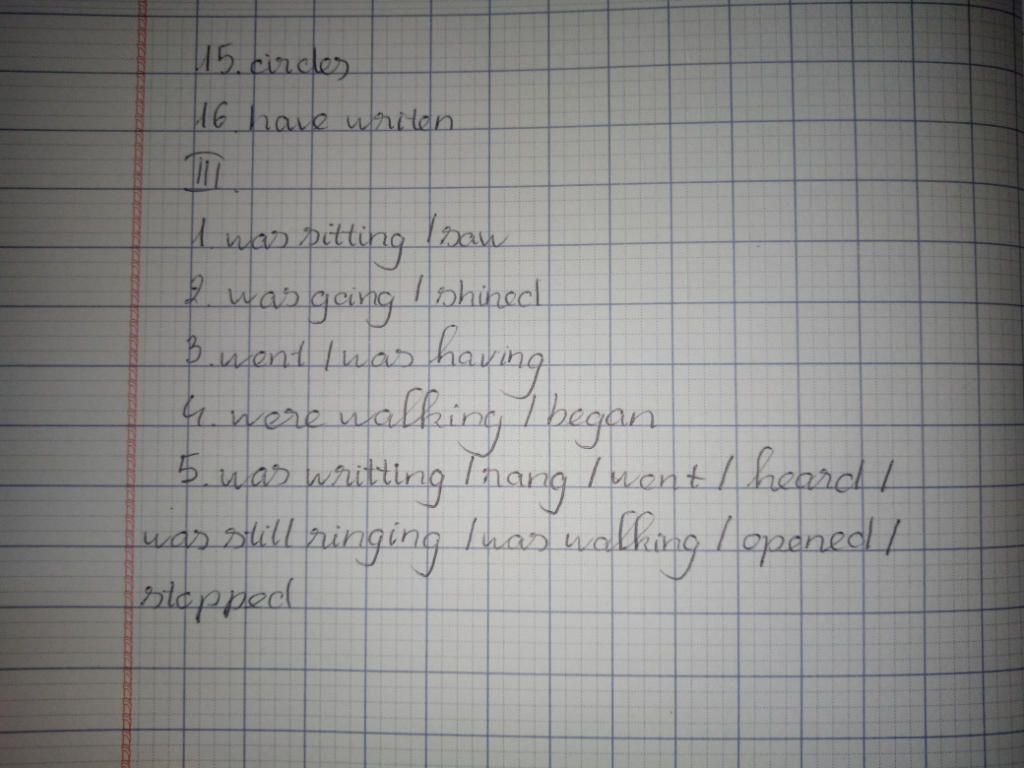 15. circles
16. have writen
III.
1. was sitting / saw
2. was going / shined
3. went / was having
4. were walking / began
5. was writting / rang / went / heard /
was still ringing / was walking / opened /
stopped